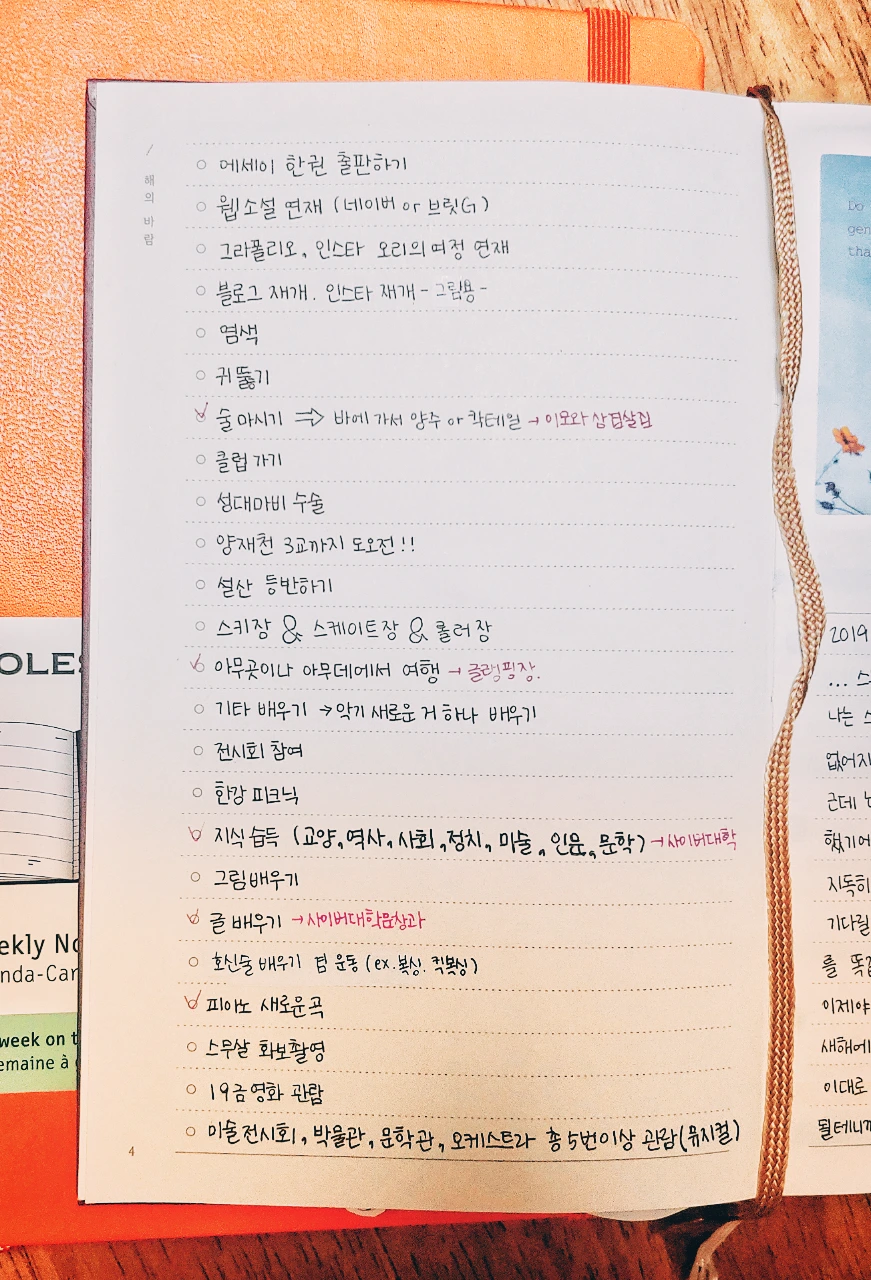 / 해의 바람
에세이 한권 출판하기
웹소설 연재 (네이버 or 브릿G)
그라폴리오, 인스타 오리의 여정 연재
블로그 재개. 인스타 재개 - 그림용 -
염색
귀 뚫기
술 마시기 ⇒ 바에 가서 양주 or 칵테일 → 이모와 삼겹살집
클럽 가기
성대마비 수술
양재천 3교까지 도오전!!
설산 등반하기
스키장 & 스케이트장 & 롤러장
아무곳이나 아무데에서 여행 → 글램핑장.
기타 배우기 → 악기 새로운 거 하나 배우기
전시회 참여
한강 피크닉
지식 습득 (교양, 역사, 사회, 정치, 미술, 인문, 문학) → 사이버대학
그림 배우기
글 배우기 → 사이버대학문창과
호신술 배우기 겸 운동 (ex. 복싱. 킥복싱)
피아노 새로운곡
스무살 화보촬영
19금 영화 관람
미술전시회, 박물관, 문학관, 오케스트라 총 5번이상 관람(뮤지컬)
4
OLES
ekly No
nda-Car
week on t
emaine à
Do
gen
tha
2019
... 스
나는 스
없어지
근데
했기에
지독히
기다릴
를 똑같
이제야
새해에
이대로
될테니까